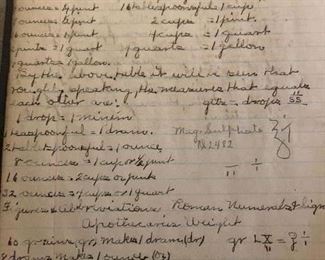 ounces = ½ pint 16 tablespoonsful = 1 cup
ounces = 1 pint 2 cups = 1 pint.
ounces = 1 pint 4 cups = 1 quart
pints = 1 quart 4 quarts = 1 gallon
quarts = 1 gallon.
By the above table it will be seen that
roughly speaking, the measures that equals
each other are: gtts = drops
1 drop = 1 minim
1 teaspoonful = 1 dram. Mag. Sulphate
2 tablespoonful = 1 ounce
8 ounces = 1 cup or ½ pint
16 ounces = 2 cups or pint
32 ounces = 4 cups or 1 quart
Figures & abbreviations Roman Numerals & Signs
Apothecaries Weight
60 grains, gr, makes 1 dram (dr) gr LX = ʒ i
8 drams makes 1 ounce (oz)